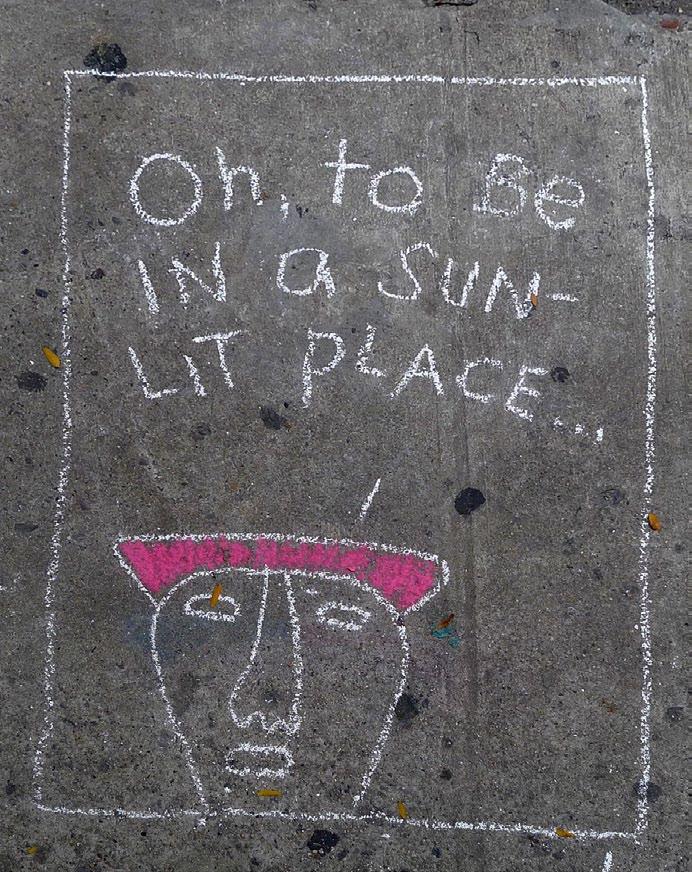 Oh, to Be
IN a SUN-
LIT PLACE...